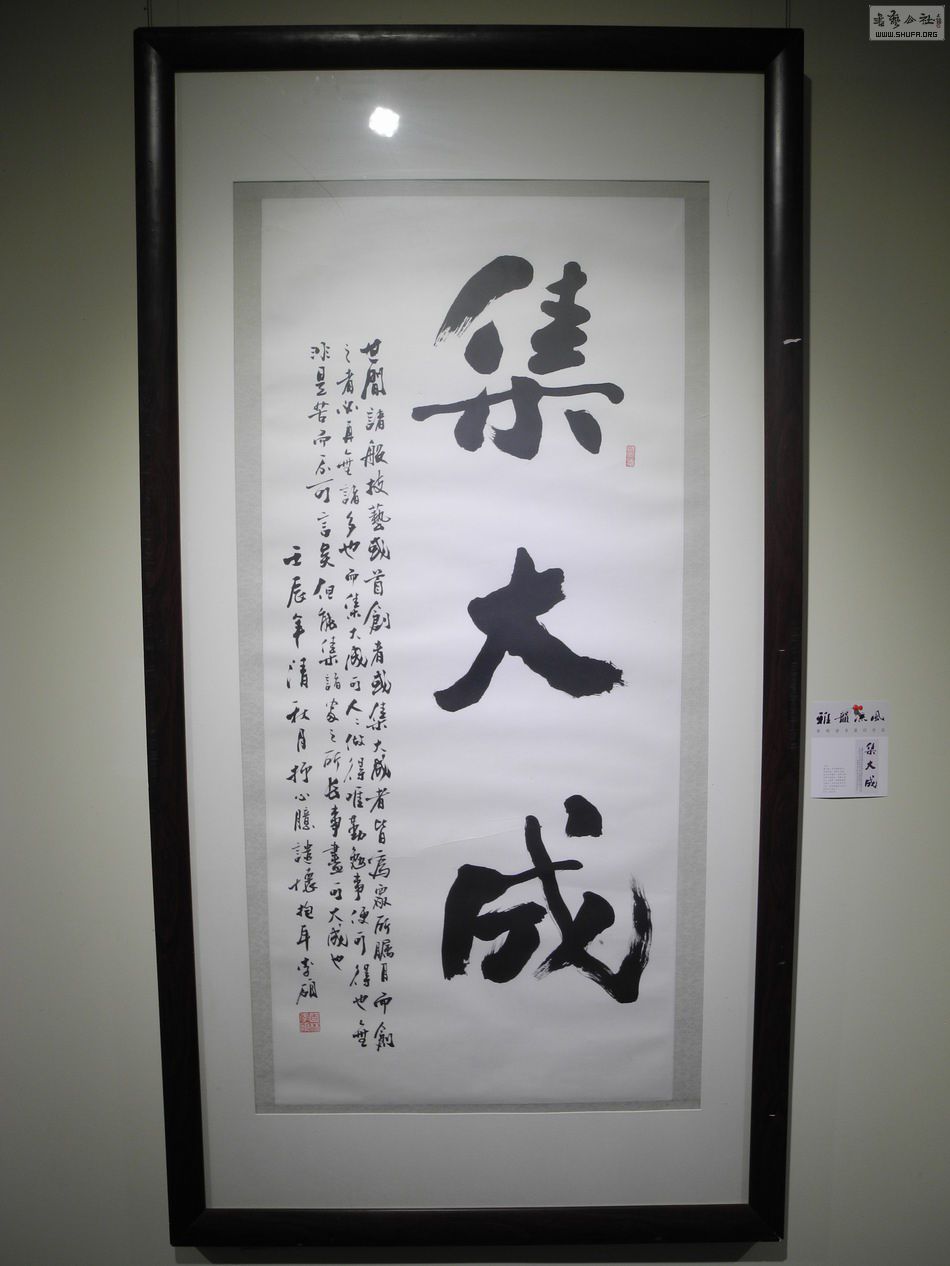 集大成
世間諸般技藝或首創者或集大成者皆為眾所矚目而創
之者必真無諸多也而集大成可人々做得唯勤勉事便可得也無
非是苦而為可言矣但能集諸家之所長事盡可大成也
壬辰年清秋月抒心臆譴懷抱耳 李碩
雅韻漢風
集大成
書藝公社
WWW.SHUFA.ORG